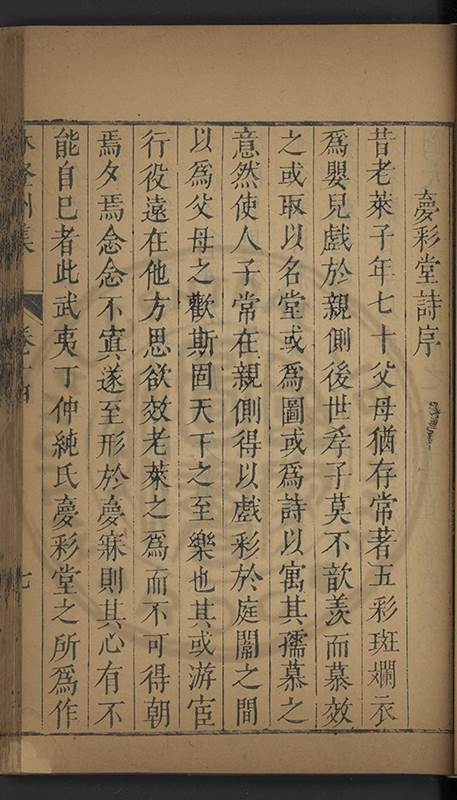 夢彩堂詩序
昔老萊子年七十父母猶存常著五彩斑斕衣
爲嬰兒戲於親側後世孝子莫不歆羨而慕效
之或取以名堂或爲圖或爲詩以寓其孺慕之
意然使人子常在親側得以戲彩於庭闈之間
以爲父母之歡斯固天下之至樂也其或游宦
行役遠在他方思欲效老萊之爲而不可得朝
焉夕焉念念不寘遂至形於夢寐則其心有不
能自已者此武夷丁仲純氏夢彩堂之所爲作
集
卷十四
七